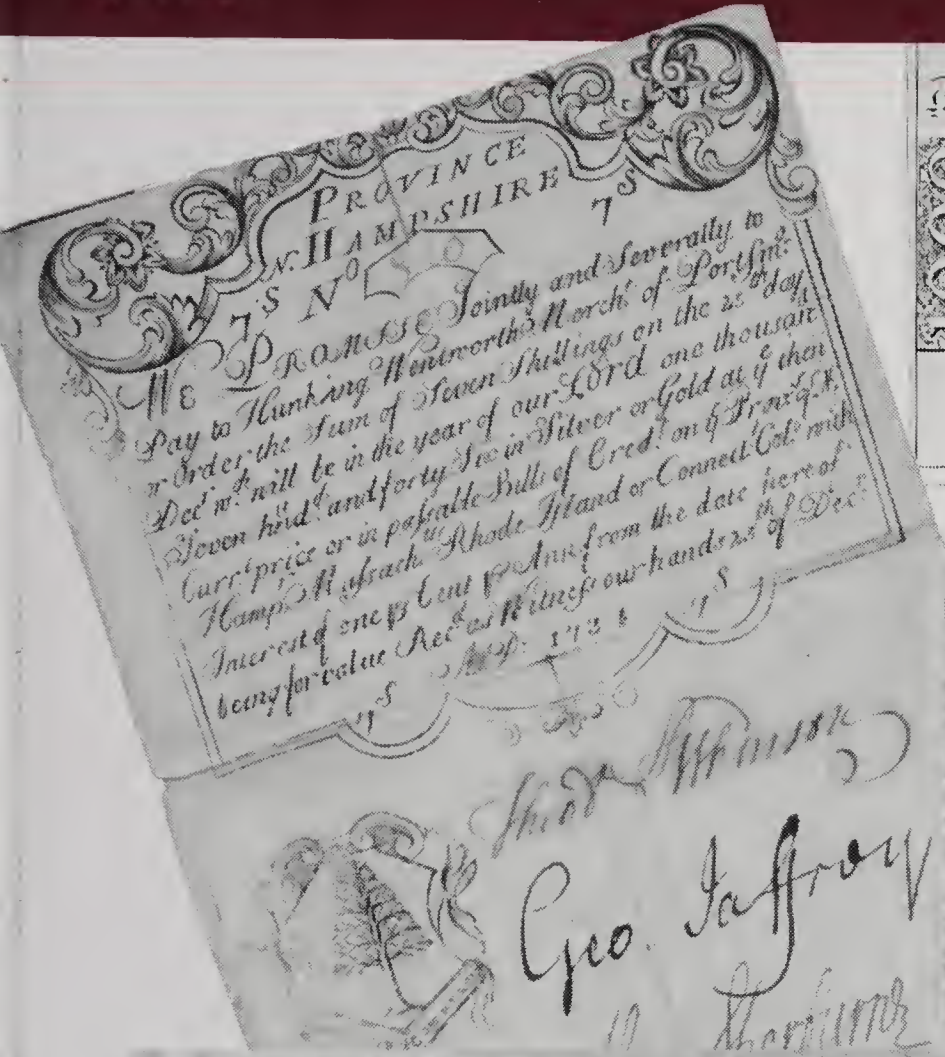 PROVINCE
N. HAMPSHIRE 7S
7S No
We PROMISE Jointly and Severally to
Pay to Hunking Wentworth Mercht of Portsmo
or Order the Sum of Seven Shillings on the 25th day
Decr wch will be in the year of our Lord one thousand
Seven hndd and forty in Silver or Gold at ye then
Currt price or in passable Bills of Credt on ye Provs of N.
Hampr Massachts Rhode Island or Connectt Colo with
Interest of one pr Cent pr Ann from the date hereof
being for value Recd as Witness our hands 25th of Decr
7S 7S
Atkinson
Geo. Jaffrey